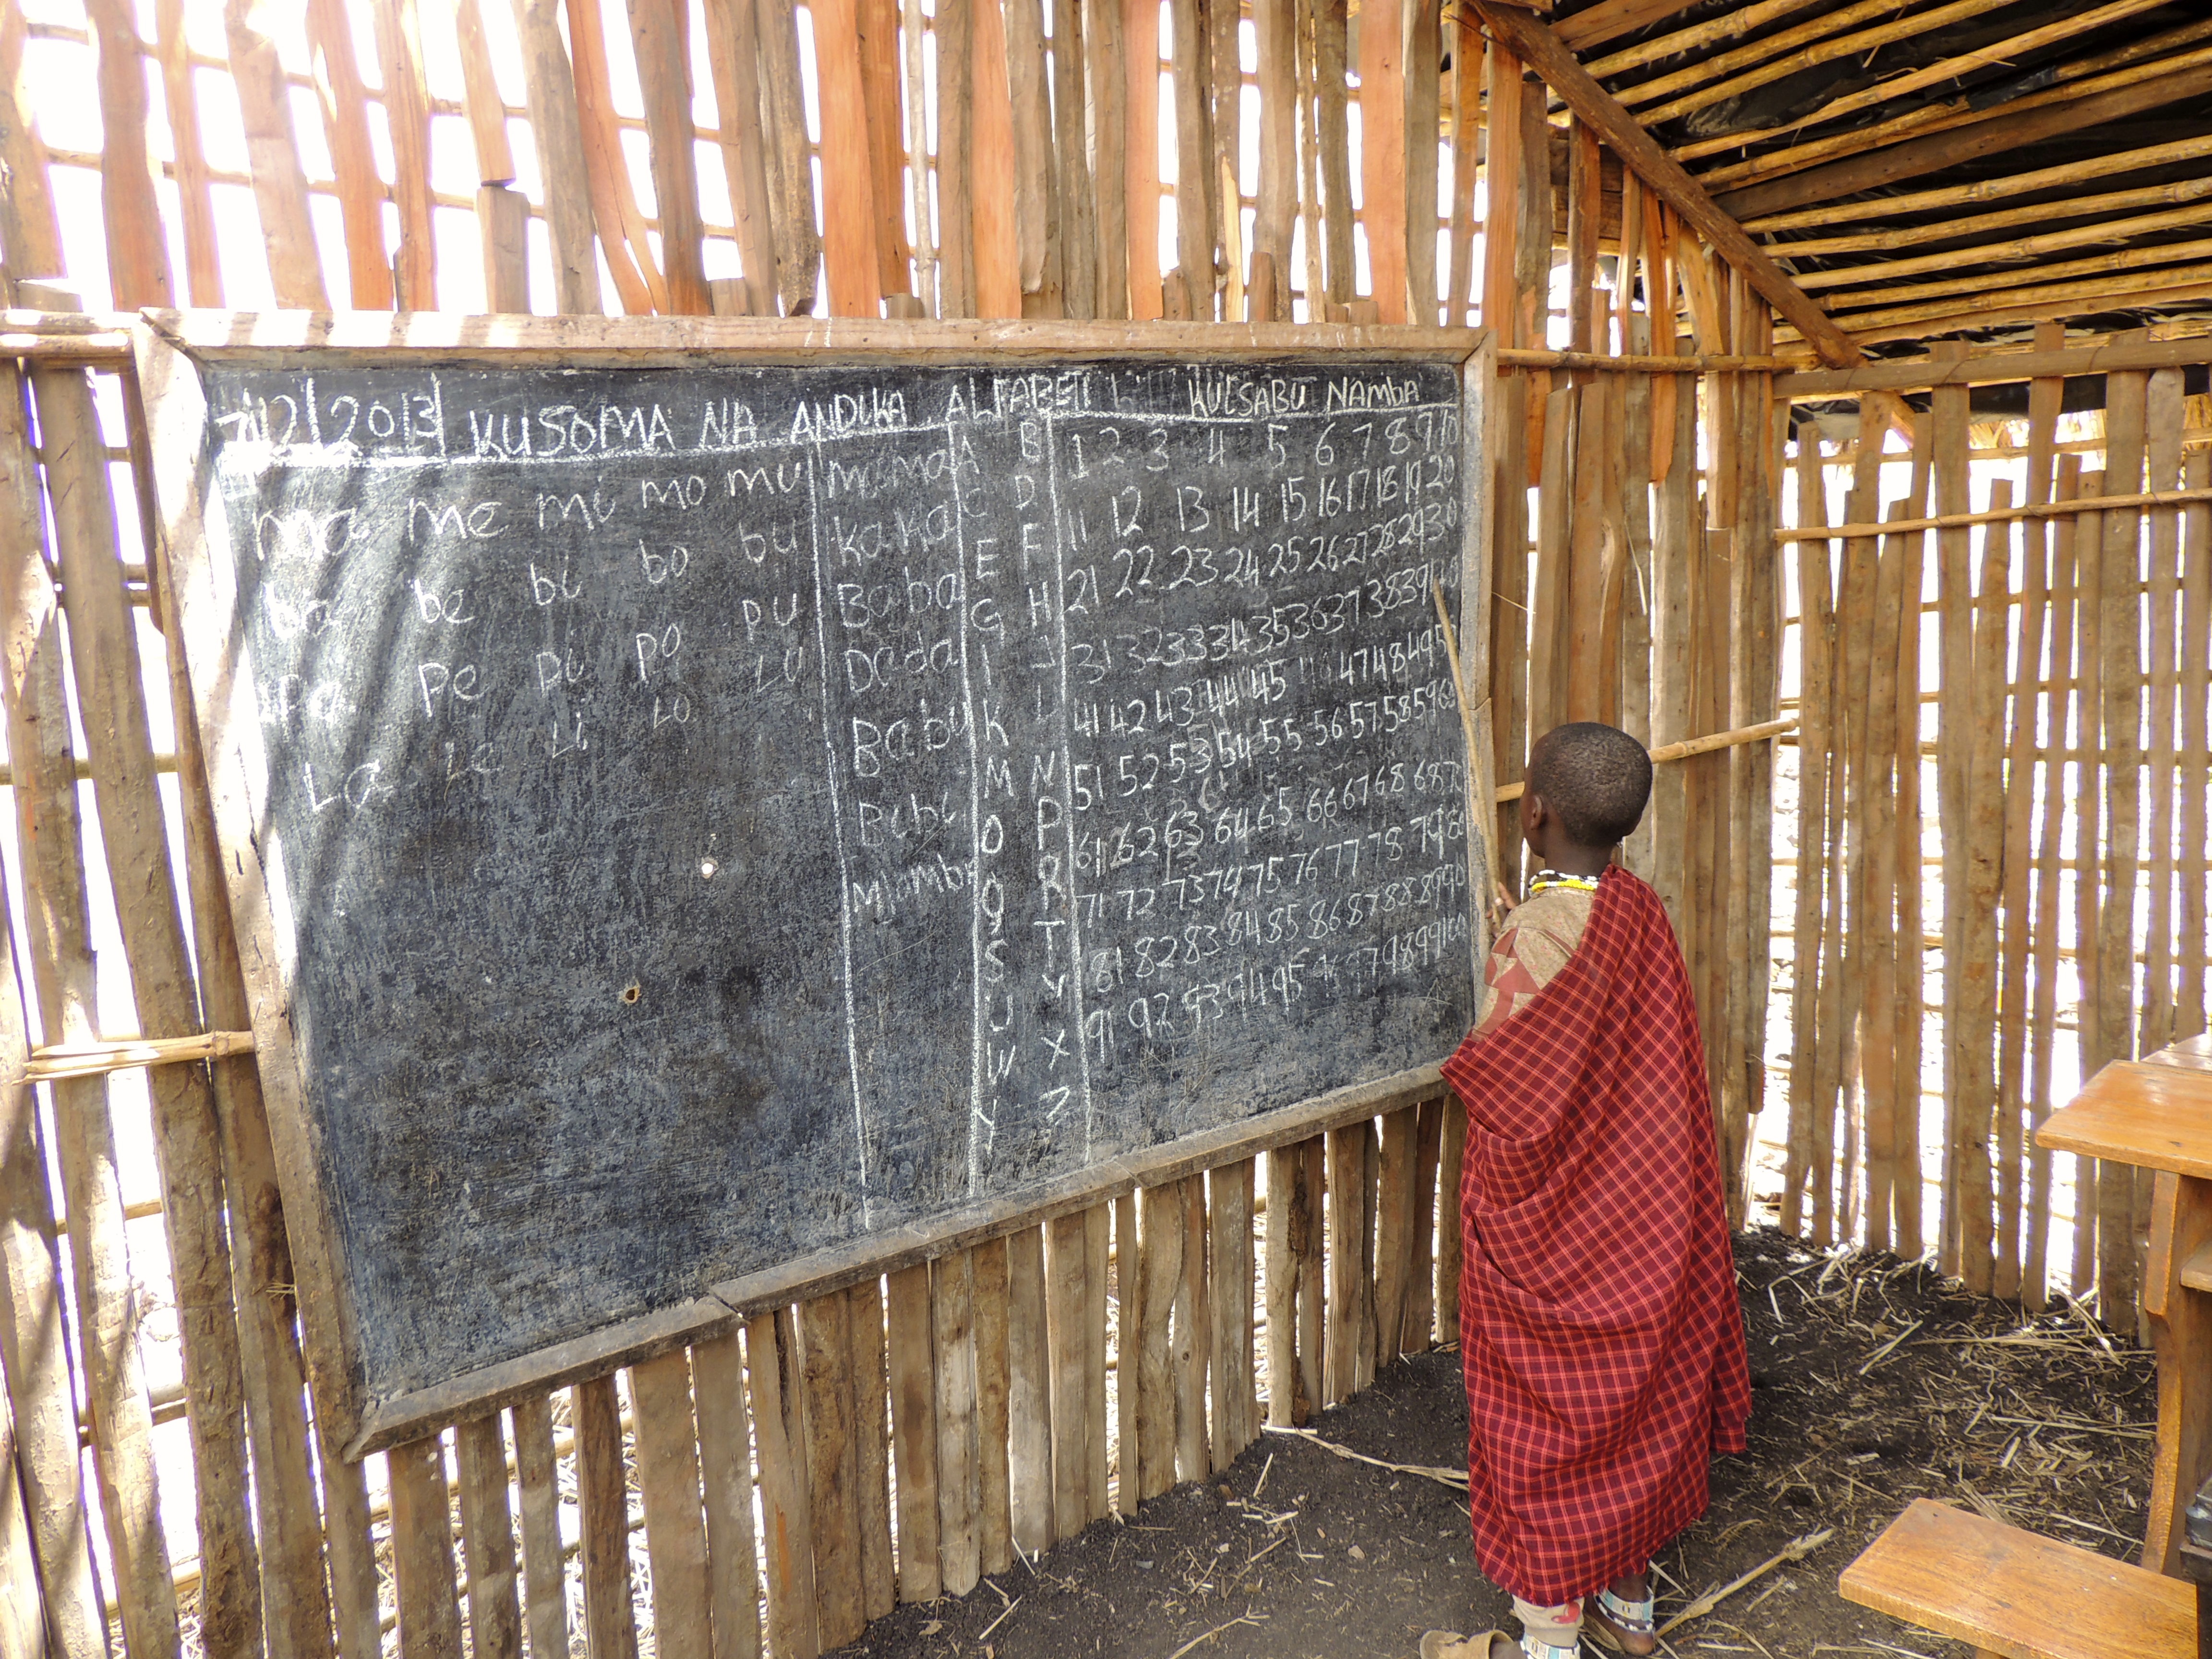 7/12/2013 KUSOMA NA ANDIKA ALFABETI KUESABU NAMBA
ma me mi mo mu
ba be bi bo bu
pa pe pi po pu
La Le Li Lo LU
mama
kaka
Baba
Dada
Babu
Bibi
A B
C D
E F
G H
I J
K L
M N
O P
Q R
S T
U V
W X
Y Z
1 2 3 4 5 6 7 8 9 10
11 12 13 14 15 16 17 18 19 20
21 22 23 24 25 26 27 28 29 30
31 32 33 34 35 36 37 38 39 40
41 42 43 44 45 46 47 48 49 5
51 52 53 54 55 56 57 58 59 60
61 62 63 64 65 66 67 68 68 70
71 72 73 74 75 76 77 78 79 80
81 82 83 84 85 86 87 88 89 90
91 92 93 94 95 96 97 98 99 100